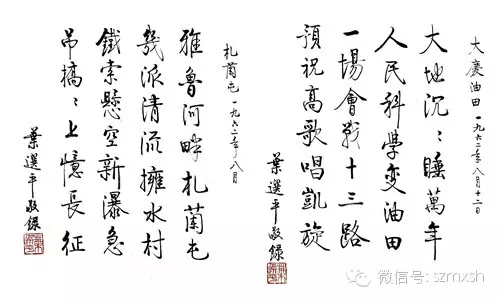 大慶油田 一九六二年八月十二日
大地沉〻睡萬年
人民科學變油田
一場會戰十三路
預祝高歌唱凱旋
葉選平敬錄
札蘭屯 一九六二年八月
雅魯河畔札蘭屯
幾派清流擁水村
鐵索懸空新瀑急
吊橋〻上憶長征
葉選平敬錄
微信号: szmxsh